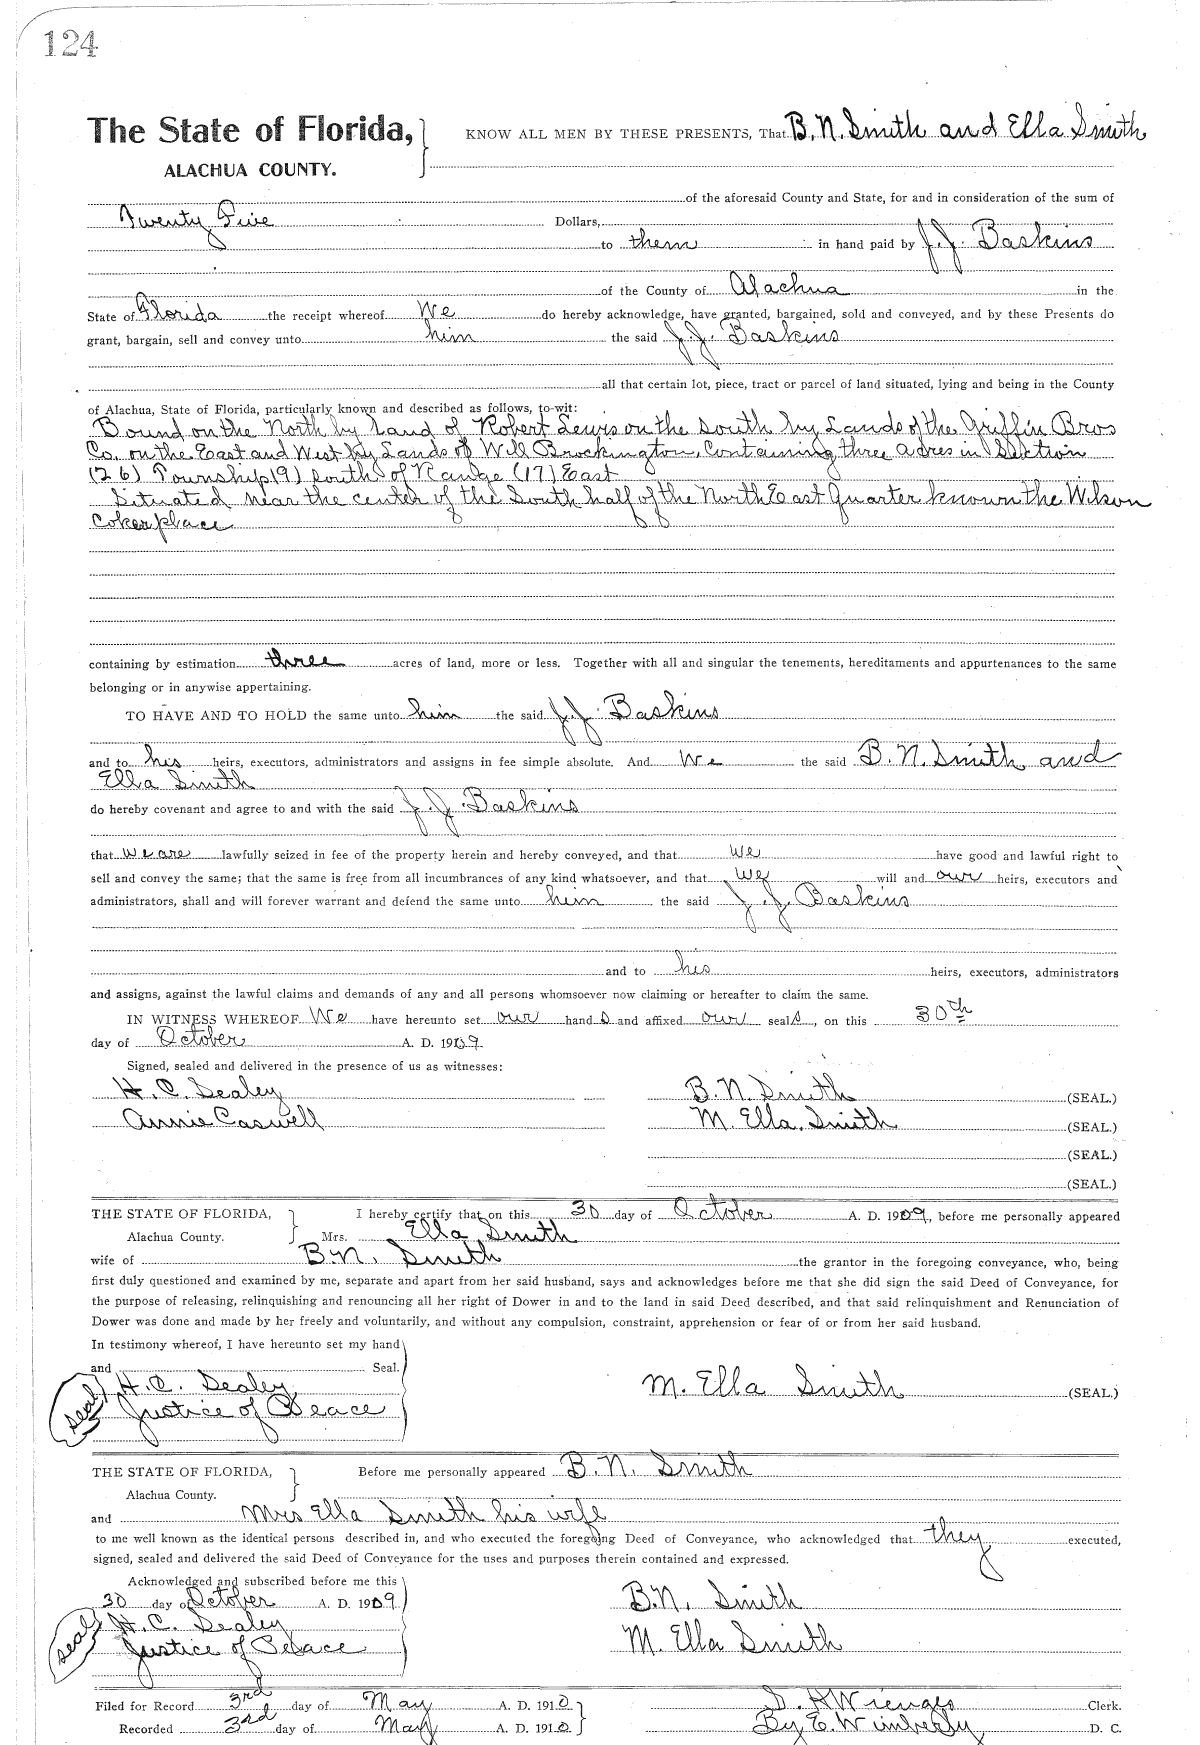 124
The State of Florida,
ALACHUA COUNTY.
KNOW ALL MEN BY THESE PRESENTS, That B. N. Smith and Ella Smith
of the aforesaid County and State, for and in consideration of the sum of
Twenty Five Dollars,
to them in hand paid by J. J. Baskins
of the County of Alachua in the
State of Florida the receipt whereof We do hereby acknowledge, have granted, bargained, sold and conveyed, and by these Presents do
grant, bargain, sell and convey unto him the said J. J. Baskins
all that certain lot, piece, tract or parcel of land situated, lying and being in the County
of Alachua, State of Florida, particularly known and described as follows, to-wit:
Bound on the North by Land of Robert Lewis on the South by Lands of the Griffin Bros
Co. on the East and West by Lands of Will Brockington, Containing three acres in Section
(26) Township (9) South of Range (17) East
Situated near the center of the South half of the North East Quarter known the Wilson
Coker place
containing by estimation three acres of land, more or less. Together with all and singular the tenements, hereditaments and appurtenances to the same
belonging or in anywise appertaining.
TO HAVE AND TO HOLD the same unto him the said J. J. Baskins
and to his heirs, executors, administrators and assigns in fee simple absolute. And We the said B. N. Smith and
Ella Smith
do hereby covenant and agree to and with the said J. J. Baskins
that we are lawfully seized in fee of the property herein and hereby conveyed, and that we have good and lawful right to
sell and convey the same; that the same is free from all incumbrances of any kind whatsoever, and that we will and our heirs, executors and
administrators, shall and will forever warrant and defend the same unto him the said J. J. Baskins
and to his heirs, executors, administrators
and assigns, against the lawful claims and demands of any and all persons whomsoever now claiming or hereafter to claim the same.
IN WITNESS WHEREOF We have hereunto set our hands and affixed our seals, on this 30th
day of October A. D. 1909.
Signed, sealed and delivered in the presence of us as witnesses:
H. C. Sealey B. N. Smith (SEAL.)
Annie Caswell M. Ella. Smith (SEAL.)
(SEAL.)
(SEAL.)
THE STATE OF FLORIDA, I hereby certify that on this 30 day of October A. D. 1909, before me personally appeared
Alachua County. Mrs. Ella Smith
wife of B. N. Smith the grantor in the foregoing conveyance, who, being
first duly questioned and examined by me, separate and apart from her said husband, says and acknowledges before me that she did sign the said Deed of Conveyance, for
the purpose of releasing, relinquishing and renouncing all her right of Dower in and to the land in said Deed described, and that said relinquishment and Renunciation of
Dower was done and made by her freely and voluntarily, and without any compulsion, constraint, apprehension or fear of or from her said husband.
In testimony whereof, I have hereunto set my hand
and Seal.
seal H. C. Sealey M. Ella Smith (SEAL.)
Justice of Peace
THE STATE OF FLORIDA, Before me personally appeared B. N. Smith
Alachua County.
and Mrs Ella Smith his wife
to me well known as the identical persons described in, and who executed the foregoing Deed of Conveyance, who acknowledged that they executed,
signed, sealed and delivered the said Deed of Conveyance for the uses and purposes therein contained and expressed.
Acknowledged and subscribed before me this
30 day of October A. D. 1909 B. N. Smith
seal H. C. Sealey
Justice of Peace M. Ella Smith
Filed for Record 3rd day of May A. D. 1910 S. H. Wienges Clerk.
Recorded 3rd day of May A. D. 1910 By E. Wimberly D. C.